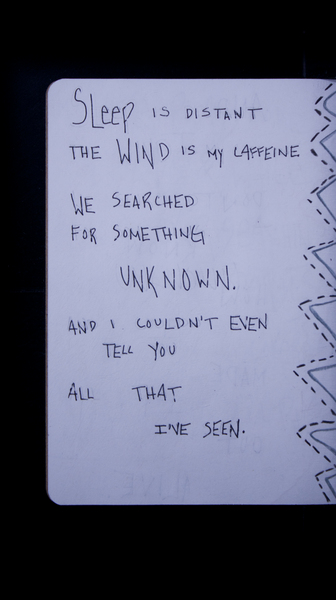 SLEEP IS DISTANT
THE WIND IS MY CAFFEINE
WE SEARCHED
FOR SOMETHING
UNKNOWN.
AND I COULDN'T EVEN
TELL YOU
ALL THAT
I'VE SEEN.